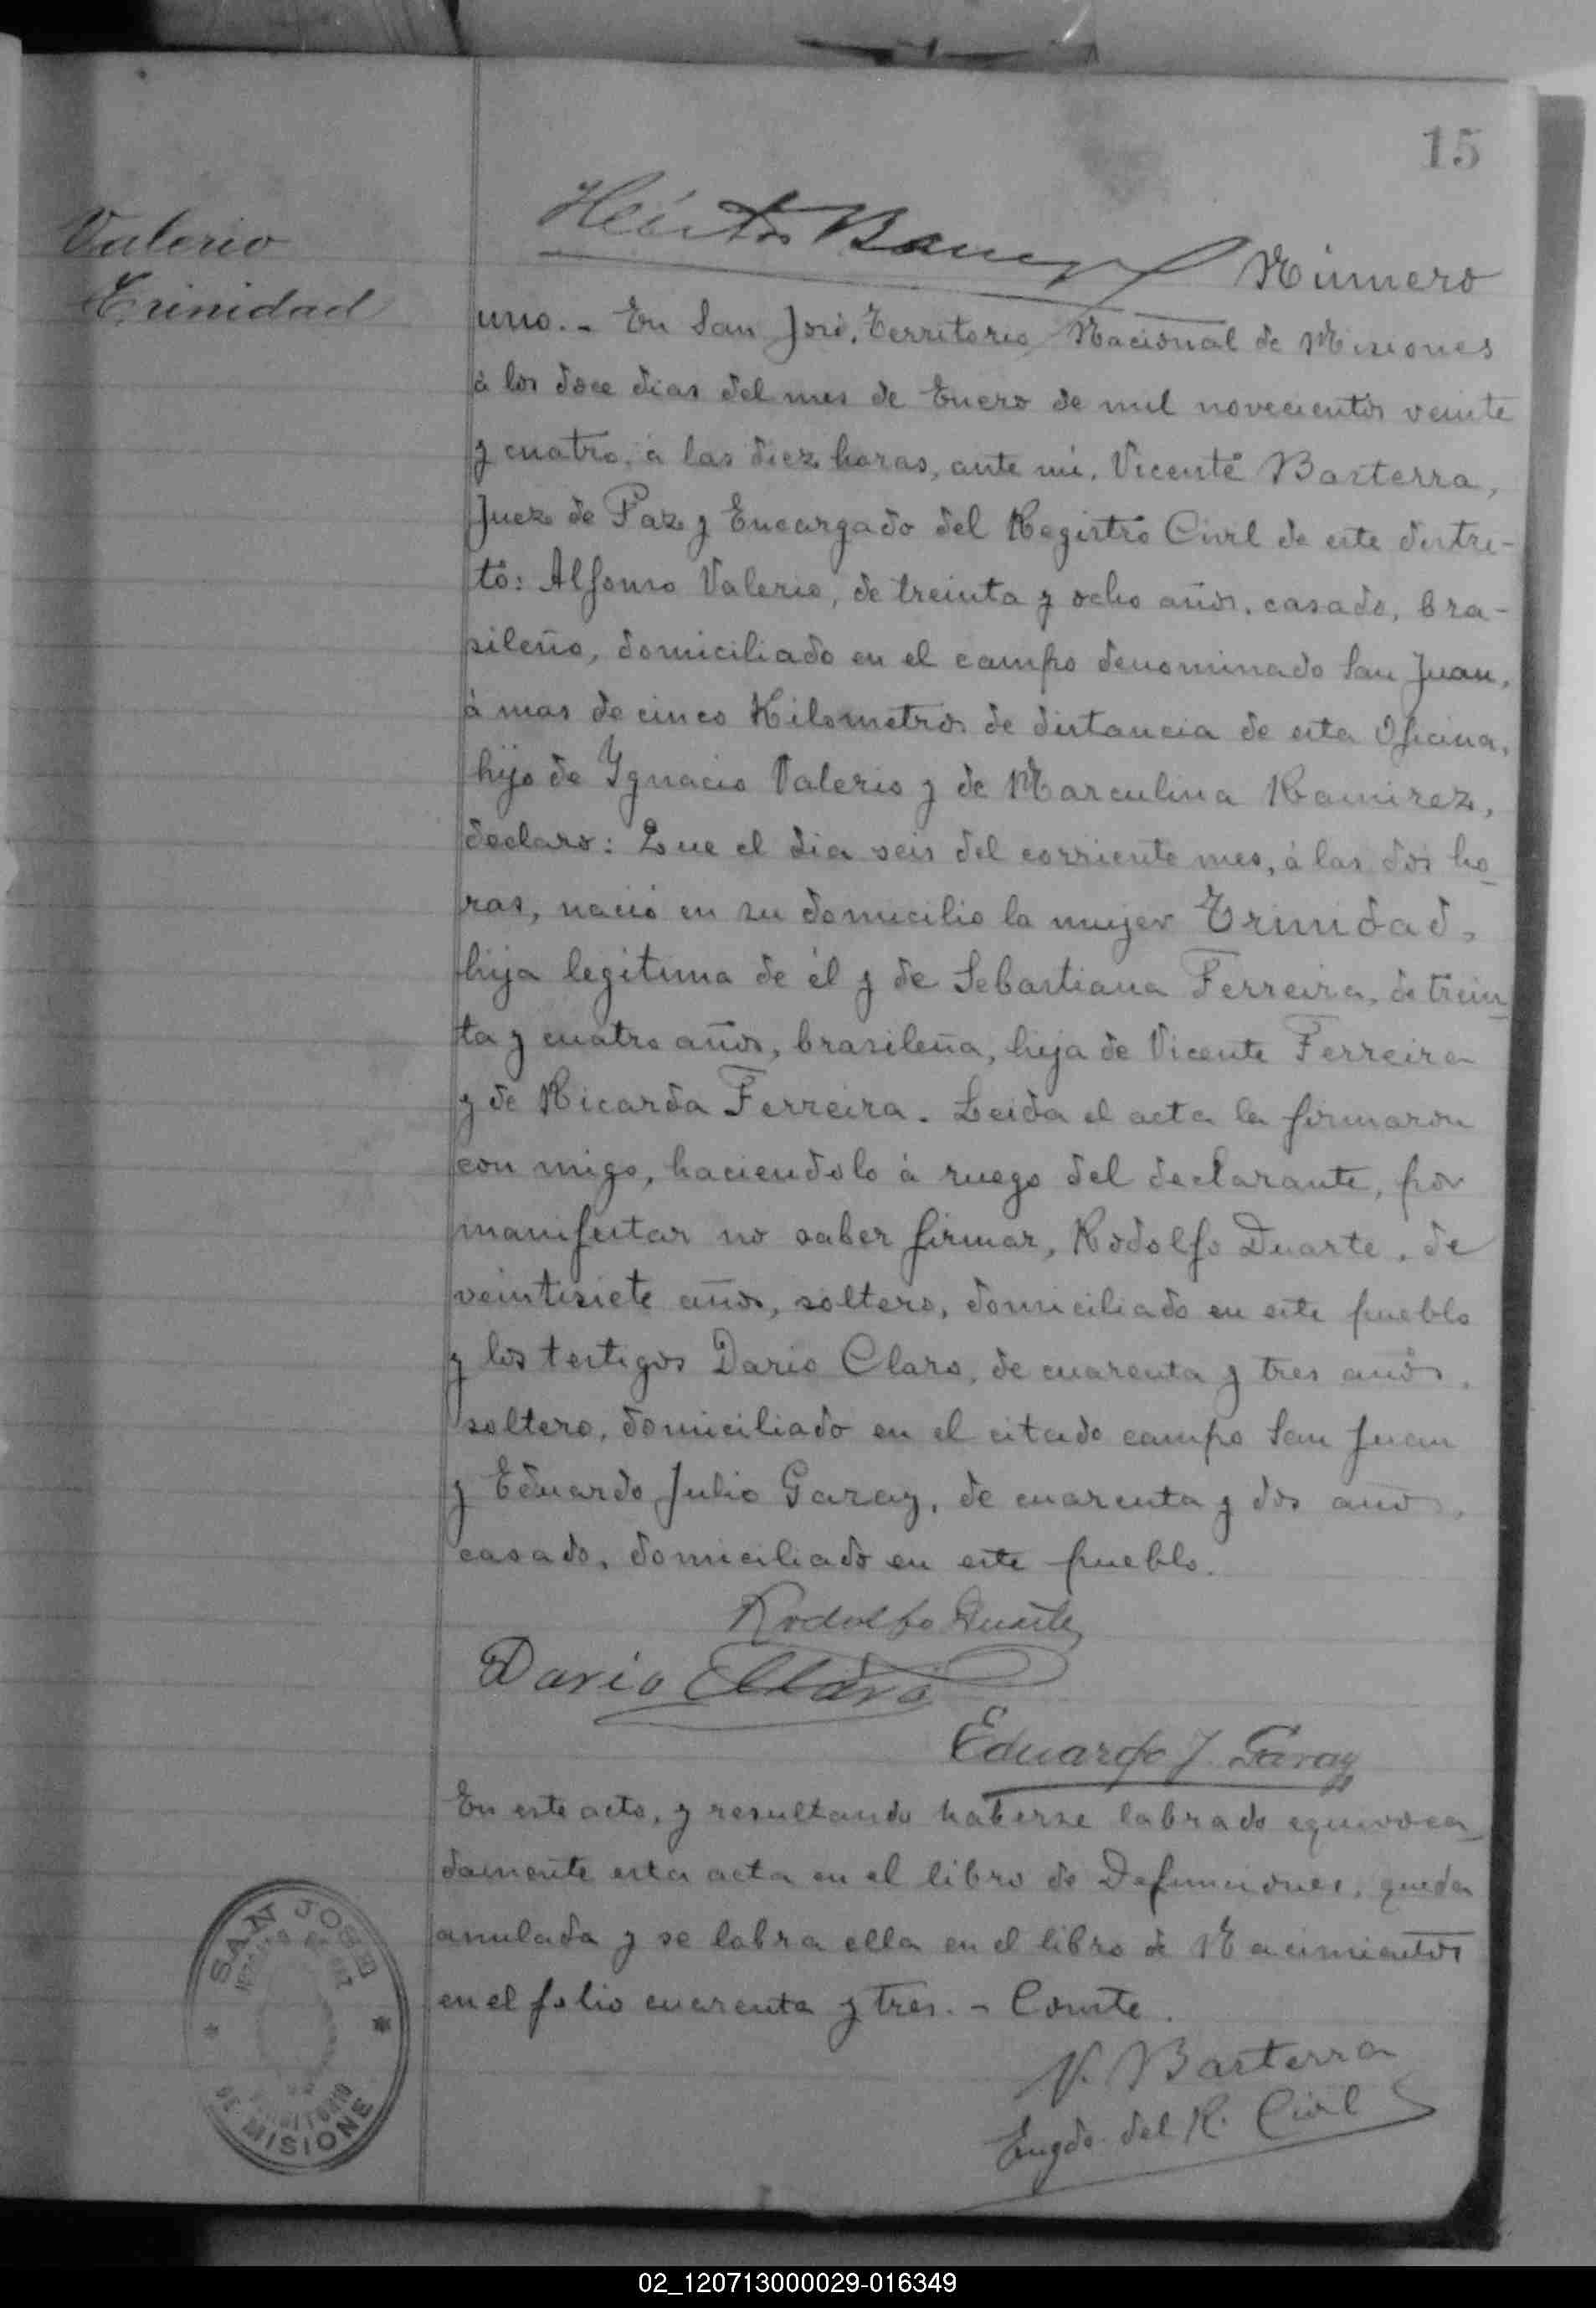 15
Valerio
Trinidad
Número
uno.- En San José, Territorio Nacional de Misiones
à los doce dias del mes de Enero de mil novecientos veinte
y cuatro, à las diez horas, ante mi, Vicente Basterra,
Juez de Paz y Encargado del Registro Civil de este distri-
to: Alfonso Valerio, de treinta y ocho años, casado, bra-
sileño, domiciliado en el campo denominado San Juan,
à mas de cinco Kilometros de distancia de esta Oficina,
hijo de Ygnacio Valerio y de Marculina Ramirez,
declaro: Que el dia seis del corriente mes, à las dos ho_
ras, nació en su domicilio la mujer Trinidad,
hija legitima de él y de Sebastiana Ferreira, de trein_
ta y cuatro años, brasileña, hija de Vicente Ferreira
y de Ricarda Ferreira. Leida el acta la firmaron
con migo, haciendolo à ruego del declarante, por
manifestar no saber firmar, Rodolfo Duarte, de
veintisiete años, soltero, domiciliado en este pueblo
y los testigos Dario Claro, de cuarenta y tres años,
soltero, domiciliado en el citado campo San Juan
y Eduardo Julio Garay, de cuarenta y dos años,
casado, domiciliado en este pueblo.
Rodolfo Duarte
Dario Claro
Eduardo J. Garay
En este acto, y resultando haberse labrado equivoca_
damente esta acta en el libro de Defunciones, queda
anulada y se labra ella en el libro de Nacimientos
en el folio cuarenta y tres.- Conste.
V. Basterra
Engdo. del R. Civil
SAN JOSE
DE MISIONE
02_120713000029-016349